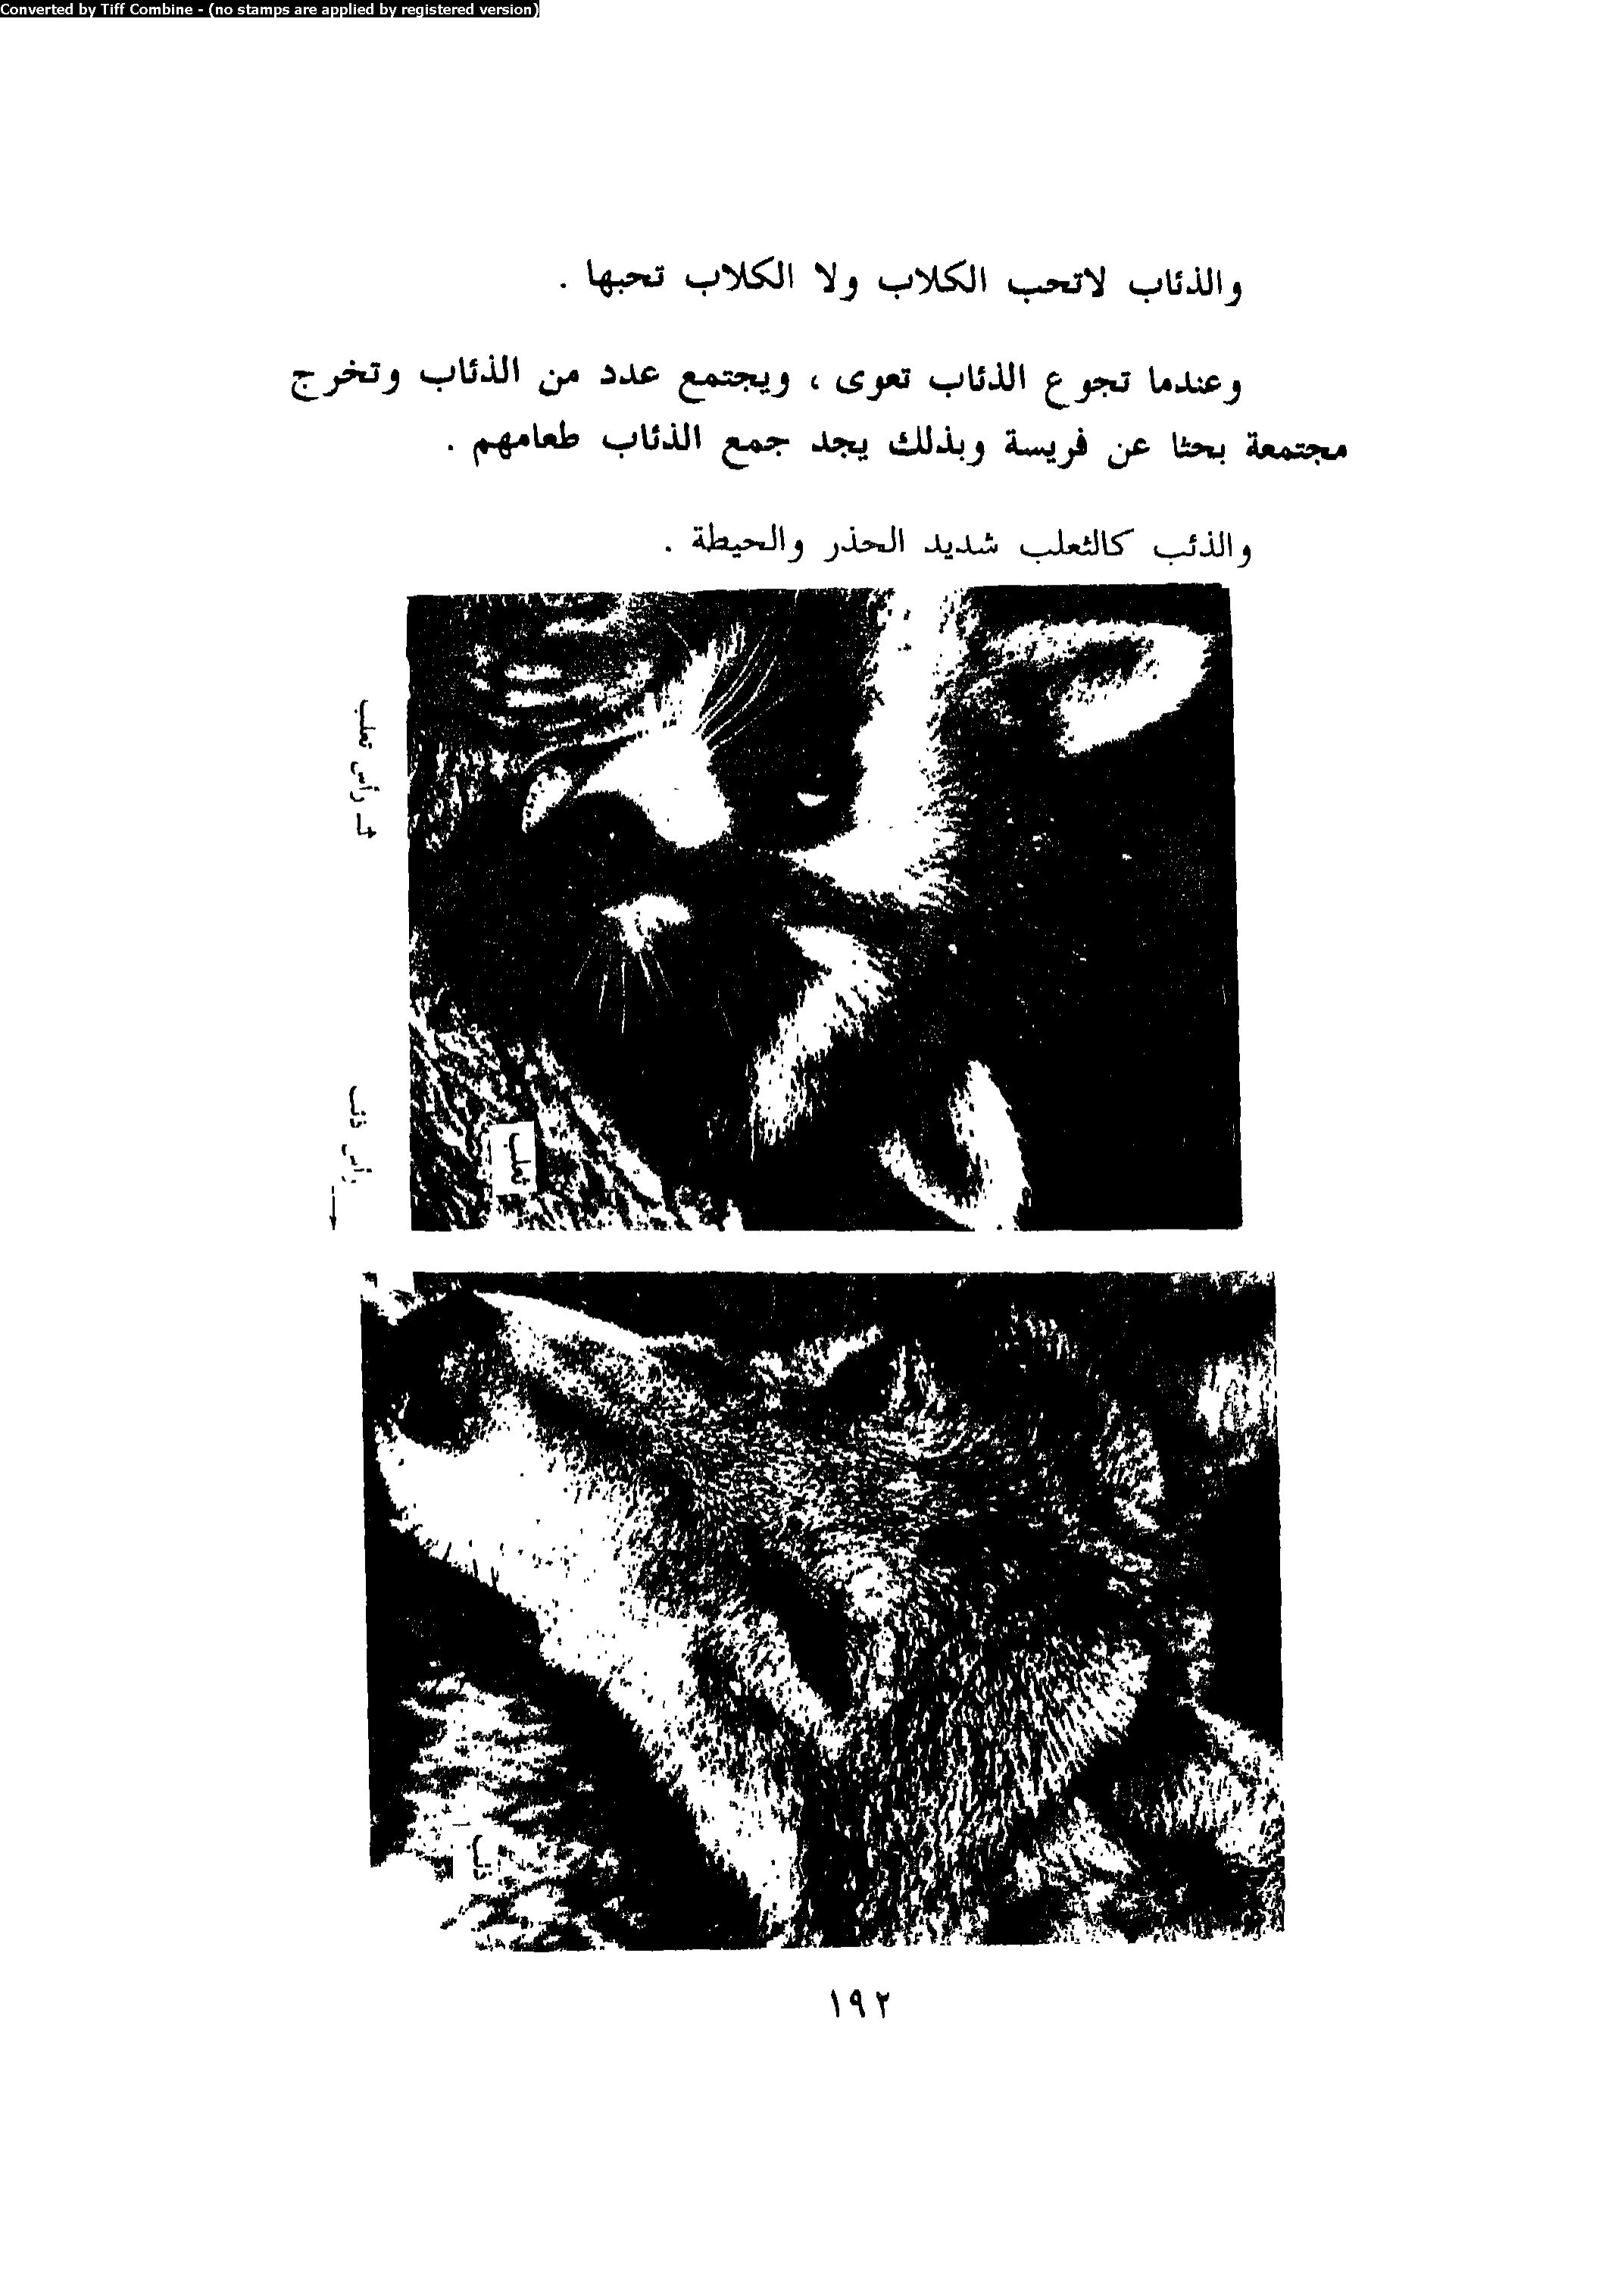 Converted by Tiff Combine - (no stamps are applied by registered version)
والذئاب لاتحب الكلاب ولا الكلاب تحبها .
وعندما تجوع الذئاب تعوى ، ويجتمع عدد من الذئاب وتخرج
مجتمعة بحثا عن فريسة وبذلك يجد جمع الذئاب طعامهم .
والذئب كالثعلب شديد الحذر والحيطة .
رأس ثعلب
ثعلب
رأس ذئب
ذئب
١٩٢